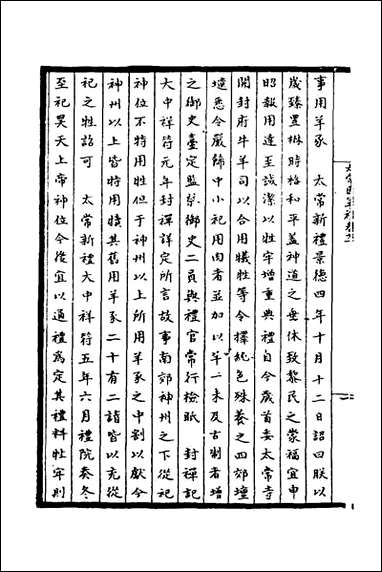 事用羊豕　太常新禮景德四年十月十二日詔曰朕以
歲臻置楙時格和平蓋神道之垂休致黎民之蒙福宜申
昭報用達至誠潔以牲牢增重典禮自今歲首委太常寺
開封府牛羊司以合用犧牲等令擇純色殊養之四郊壇
壝悉令嚴歸中小祀用肉者並加以羊一未及古制者增
之御史臺定監祭御史二員與禮官常行檢眂　封禪記
大中祥符元年封禪詳定所言故事南郊神州之下從祀
神位不特用牲但于神州以上所用羊豕之中割以獻今
神州以上皆特用犢其舊用羊豕二十有二請皆以充從
祀之牲詔可　太常新禮大中祥符五年六月禮院奏冬
至祀昊天上帝神位今後宜以通禮為定其禮料牲牢則